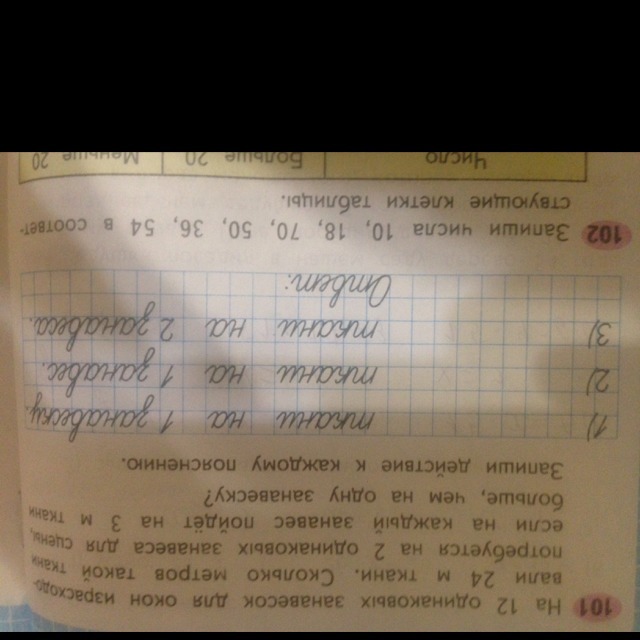 101 На 12 одинаковых занавесок для окон израсходо-
вали 24 м ткани. Сколько метров такой ткани
потребуется на 2 одинаковых занавеса для сцены,
если на каждый занавес пойдёт на 3 м ткани
больше, чем на одну занавеску?
Запиши действие к каждому пояснению.
1) ткани на 1 занавеску.
2) ткани на 1 занавес.
3) ткани на 2 занавеса.
Ответ:
102 Запиши числа 10, 18, 70, 50, 36, 54 в соответ-
ствующие клетки таблицы.
Число Больше 20 Меньше 20